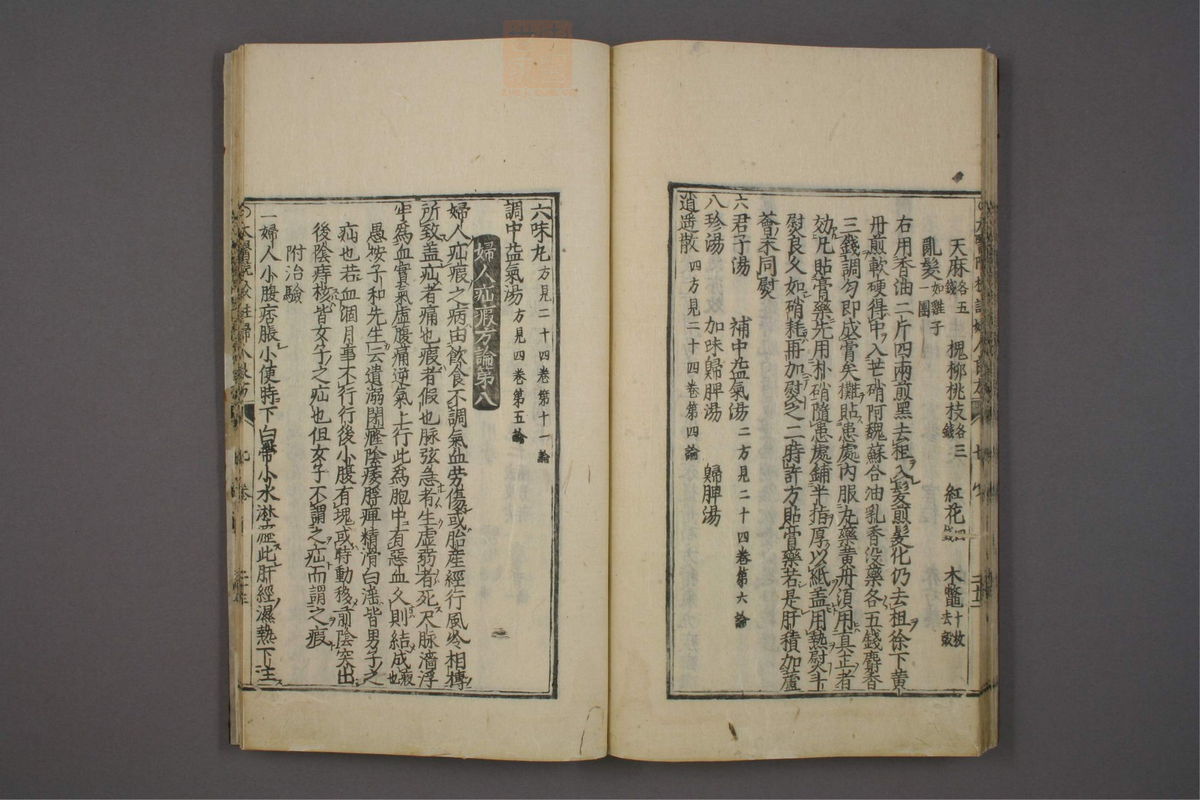 天麻各五錢 槐柳桃枝各三錢 紅花四錢 木鼈十枚去殼
亂髮如雞子一團
右用香油二斤四兩煎黑去柤入髮煎髮化仍去柤徐下黄
丹煎軟硬得中入芒硝阿魏蘇合油乳香没藥各五錢麝香
三錢調勻即成膏矣攤貼患處内服丸藥黄丹湏用真正者
効凡貼膏藥先用朴硝隨患處鋪半指厚以紙盖用熱熨斗
熨良久如硝耗再加熨之二時許方貼膏藥若是肝積加蘆
薈末同熨
六君子湯 補中益氣湯二方見二十四卷第六論
八珍湯 加味歸脾湯 歸脾湯
逍遥散四方見二十四卷第四論
六味丸方見二十四卷第十一論
調中益氣湯方見四卷第五論
婦人疝瘕方論第八
婦人疝瘕之病由飲食不調氣血勞傷或胎產經行風冷相搏
所致盖疝者痛也瘕者假也脉弦急者生虚弱者死尺脉濇浮
牢為血實氣虚腹痛逆氣上行此為胞中有惡血久則結成瘕也
愚按子和先生云遺溺閉癃陰痿脬痺精滑白淫皆男子之
疝也若血涸月事不行行後小腹有塊或時動移前陰突出
後陰痔核皆女子之疝也但女子不謂之疝而謂之瘕
附治驗
一婦人小腹痞脹小便時下白帶小水淋瀝此肝經濕熱下注